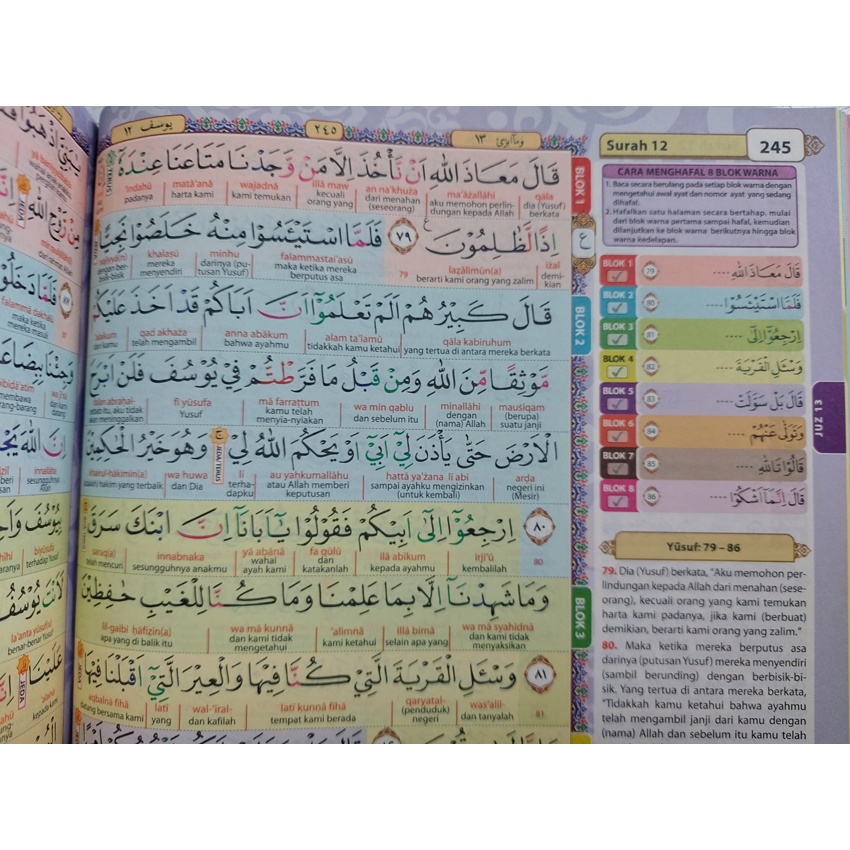 يوسف ١٢
٢٤٥
وماابرئ ١٣
قَالَ مَعَاذَ اللّٰهِ اَنْ نَّأْخُذَ اِلَّا مَنْ وَّجَدْنَا مَتَاعَنَا عِنْدَهٗٓ
qāla ma'āżallāhi an na'khuża illā maw wajadnā matā'anā 'indahū
dia (Yusuf) berkata aku memohon perlin-dungan kepada Allah dari menahan (seseorang) kecuali orang yang kami temukan harta kami padanya
اِذًا لَّظٰلِمُوْنَ ٧٩ فَلَمَّا اسْتَيْـَٔسُوْا مِنْهُ خَلَصُوْا نَجِيًّا
iżal laẓālimūn(a) 79 falammastai'asū minhu khalaṣū
demi-kian berarti kami orang yang zalim maka ketika mereka berputus asa darinya (pu-tusan Yusuf) mereka menyendiri
قَالَ كَبِيْرُهُمْ اَلَمْ تَعْلَمُوْٓا اَنَّ اَبَاكُمْ قَدْ اَخَذَ عَلَيْكُمْ
qāla kabīruhum alam ta'lamū anna abākum qad akhaża
yang tertua di antara mereka berkata tidakkah kamu ketahui bahwa ayahmu telah mengambil
مَّوْثِقًا مِّنَ اللّٰهِ وَمِنْ قَبْلُ مَا فَرَّطْتُّمْ فِيْ يُوْسُفَ فَلَنْ اَبْرَحَ
mauṡiqam minallāhi wa min qablu mā farrattum fī yūsufa falan abraḥal-
(berupa) suatu janji dengan (nama) Allah dan sebelum itu kamu telah menyia-nyiakan Yusuf
الْاَرْضَ حَتّٰى يَأْذَنَ لِيْٓ اَبِيْٓ اَوْ يَحْكُمَ اللّٰهُ لِيْ وَهُوَ خَيْرُ الْحٰكِمِيْنَ
arḍa ḥattā ya'żana lī abī au yaḥkumallāhu lī wa huwa khairul-ḥākimīn(a)
negeri ini (Mesir) sampai ayahku mengizinkan (untuk kembali) atau Allah memberi keputusan terha-dapku dan Dia
٨٠ اِرْجِعُوْٓا اِلٰٓى اَبِيْكُمْ فَقُوْلُوْا يٰٓاَبَانَآ اِنَّ ابْنَكَ سَرَقَ
80 irji'ū ilā abīkum fa qūlū yā abānā innabnaka saraq(a)
kembalilah kepada ayahmu dan katakanlah wahai ayah kami sesungguhnya anakmu telah mencuri
وَمَا شَهِدْنَآ اِلَّا بِمَا عَلِمْنَا وَمَا كُنَّا لِلْغَيْبِ حٰفِظِيْنَ
wa mā syahidnā illā bimā 'alimnā wa mā kunnā lil-gaibi ḥāfiẓīn(a)
dan kami tidak menyaksikan selain apa yang kami ketahui dan kami tidak mengetahui apa yang di balik itu
٨١ وَسْـَٔلِ الْقَرْيَةَ الَّتِيْ كُنَّا فِيْهَا وَالْعِيْرَ الَّتِيْٓ اَقْبَلْنَا فِيْهَا
81 was'alil- qaryatal- latī kunnā fīhā wal-'īral- latī aqbalnā fīhā
dan tanyalah (penduduk) negeri tempat kami berada dan kafilah yang datang bersama kami
BLOK 1
BLOK 2
BLOK 3
Surah 12
245
CARA MENGHAFAL 8 BLOK WARNA
1. Baca secara berulang pada setiap blok warna dengan
mengetahui dua awal ayat dan nomor ayat yang sedang
dihafal.
2. Hafalkan satu halaman secara bertahap, mulai
dari blok warna pertama sampai hafal, kemudian
dilanjutkan ke blok warna berikutnya hingga blok
warna kedelapan.
BLOK 1 79 قَالَ مَعَاذَ اللّٰهِ ....
BLOK 2 80 فَلَمَّا اسْتَيْـَٔسُوْا ....
BLOK 3 81 اِرْجِعُوْٓا اِلٰٓى ....
BLOK 4 82 وَسْـَٔلِ الْقَرْيَةَ ....
BLOK 5 83 قَالَ بَلْ سَوَّلَتْ ....
BLOK 6 84 وَتَوَلّٰى عَنْهُمْ ....
BLOK 7 85 قَالُوْا تَاللّٰهِ ....
BLOK 8 86 قَالَ اِنَّمَآ اَشْكُوْا ....
JUZ 13
Yūsuf: 79 – 86
79. Dia (Yusuf) berkata, "Aku memohon per-
lindungan kepada Allah dari menahan (sese-
orang), kecuali orang yang kami temukan
harta kami padanya, jika kami (berbuat)
demikian, berarti kami orang yang zalim."
80. Maka ketika mereka berputus asa
darinya (putusan Yusuf) mereka menyendiri
(sambil berunding) dengan berbisik-bi-
sik. Yang tertua di antara mereka berkata,
"Tidakkah kamu ketahui bahwa ayahmu
telah mengambil janji dari kamu dengan
(nama) Allah dan sebelum itu kamu telah